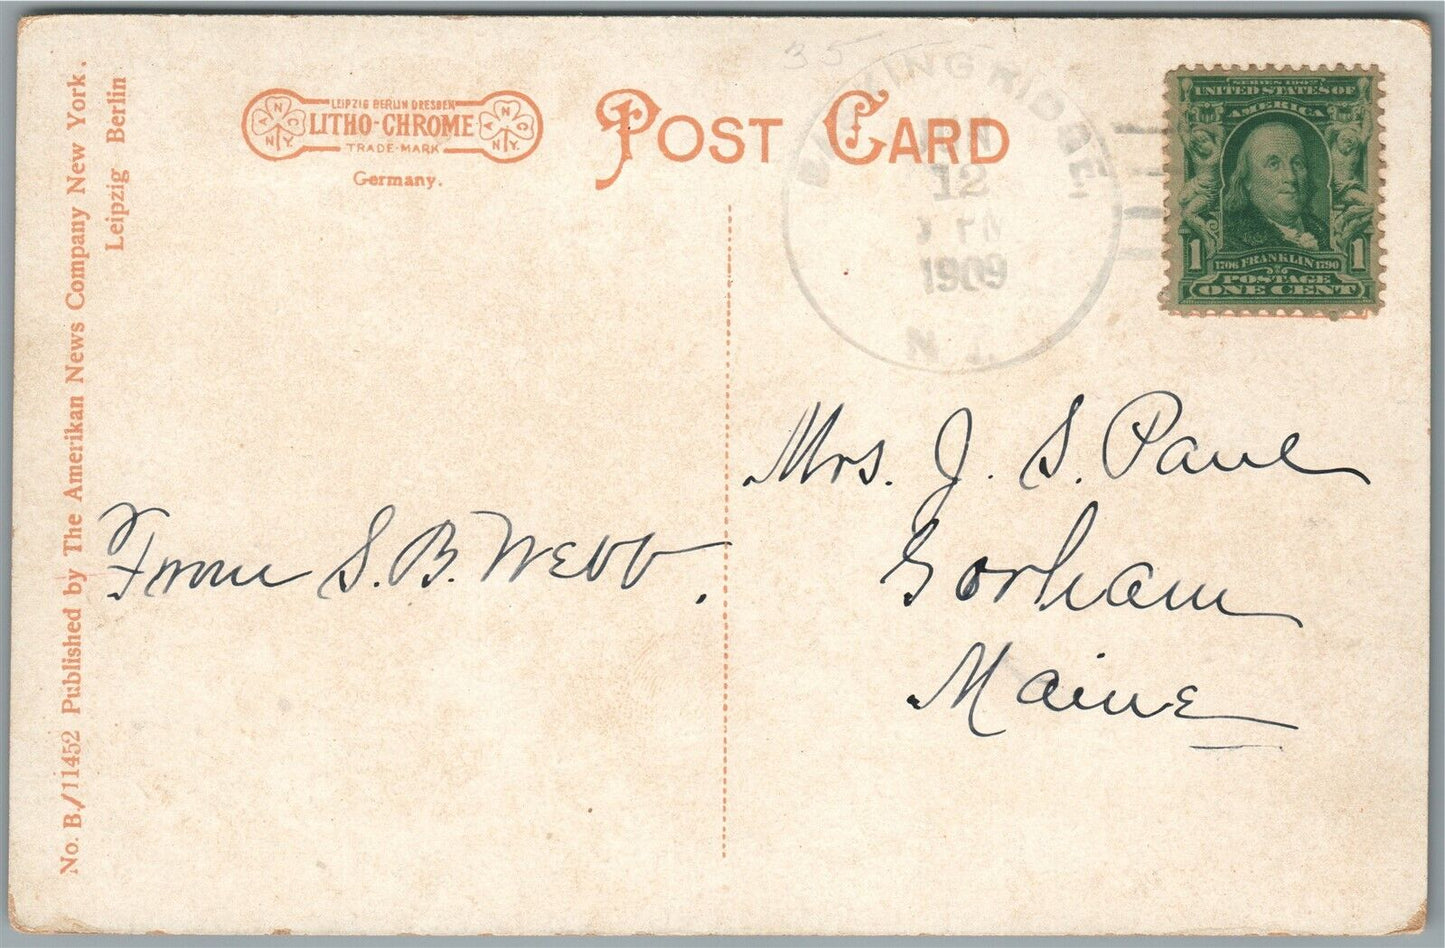 No. B./11452 Published by The Amerikan News Company New York.
Leipzig Berlin
LEIPZIG BERLIN DRESDEN
LITHO-CHROME
TRADE-MARK
Germany.
POST CARD
35
BASKING RIDGE
12
1909
N.J.
SERIES 1902
UNITED STATES OF
AMERICA
1 1
1706 FRANKLIN 1790
POSTAGE
ONE CENT
Mrs. J. S. Paul
Gorham
Maine
From S. B. Webb.